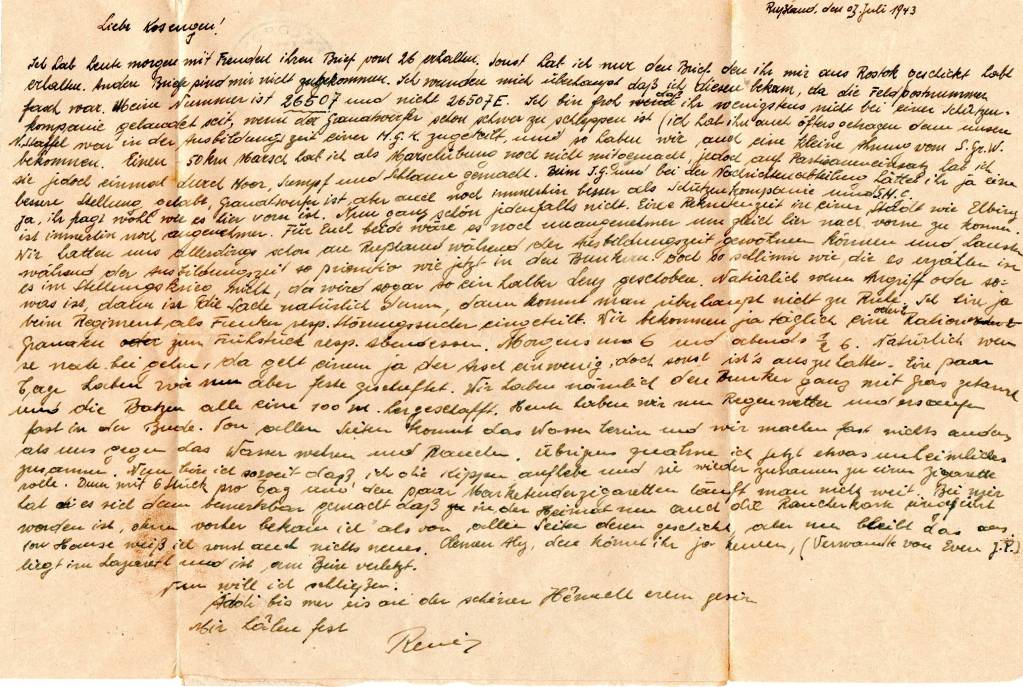 Rußland, den 07. Juli 1943
Liebe Kosengen!
Ich hab heute morgen mit Freuden ihren Brief vom 26 erhalten. Sonst hab ich nur den Brief den ihr mir aus Rostok geschickt habt
erhalten. Andere Briefe sind mir nicht zugekommen. Ich wundere mich überhaupt daß ich diesen bekam, da die Feldpostnummer
falsch war. Meine Nummer ist 26507 und nicht 26507E. Ich bin froh daß ihr wenigstens nicht bei einer Schützen-
kompanie gelandet seit, wenn der Granatwerfer schon schwer zu schleppen ist (ich hab ihn auch öfters getragen denn unsere
N. Staffel war in der Ausbildungszeit einer M.G.K. zugeteilt und so haben wir auch eine kleine Ahnung vom S.Gr.W.
bekommen. Einen 50 km Marsch hab ich als Marschübung noch nicht mitgemacht, jedoch auf Partisaneneinsatz hab ich
sie jedoch einmal durch Moor, Sumpf und Schlamm gemacht. Beim und bei der Nachrichtenabteilung hättet ihr ja eine
bessere Stellung gehabt, Granatwerfer ist aber auch noch immerhin besser als Schützenkompanie und
ja, ihr fragt wohl wie es hier vorn ist. Nun ganz schön jedenfalls nicht. Eine Rekrutenzeit in einer Stadt wie Elbing
ist immerhin noch angenehmer. Für Euch beide wäre es noch unangenehmer um gleich hier nach vorne zu kommen.
Wir hatten uns allerdings schon an Rußland während der Ausbildungszeit gewöhnen können und hausten
während der Ausbildungszeit so primitiv wie jetzt in den Bunkern. Doch so schlimm wie die es erzählen ist
es im Stellungskrieg nicht, da wird sogar so ein halber Lenz geschoben. Natürlich wenn Angriff oder so-
was ist, dann ist die Sache natürlich, dann kommt man überhaupt nicht zu Ruhe. Ich bin ja
beim Regiment als Funker resp. Störungssucher eingeteilt. Wir bekommen ja täglich eine Ration
Granaten zum Frühstück resp. Abendessen. Morgens um 6 und abends ½ 6. Natürlich wenn
se nahe bei gehn, da geht einem ja der Arsch ein wenig, doch sonst ist's auszuhalten. Ein paar
Tage haben wir nun aber feste geschuftet. Wir haben nämlich den Bunker ganz mit Gras getarnt
und die Batzen alle eine 100 m. hergeschafft. Heute haben wir nun Regenwetter und ersaufen
fast in der Bude. Von allen Seiten kommt das Wasser herein und wir machen fast nichts anders
als uns gegen das Wasser wehren und Rauchen. Übrigens qualme ich jetzt etwas unheimliches
zusammen. Nun bin ich soweit daß ich die Kippen aufhebe und sie wieder zusammen zu einer Zigarette
rolle. Denn mit 6 Stück pro Tag und den paar Marketenderzigaretten läuft man nicht weit. Bei mir
hat es sich dann bemerkbar gemacht daß in der Heimat nun auch die Raucherkart eingeführt
worden ist, denn vorher bekam ich als von allen Seiten deren geschickt, aber nun bleibt das aus.
von Hause weiß ich sonst auch nichts neues. Clemen Aly, den könnt ihr ja kennen, (Verwandte von Even J.P.)
liegt im Lazarett und ist am Bein verletzt.
Nun will ich schließen.
Addi bis mer eis an der schéiner Hémecht erem gesin
Mir hâlen fest
René